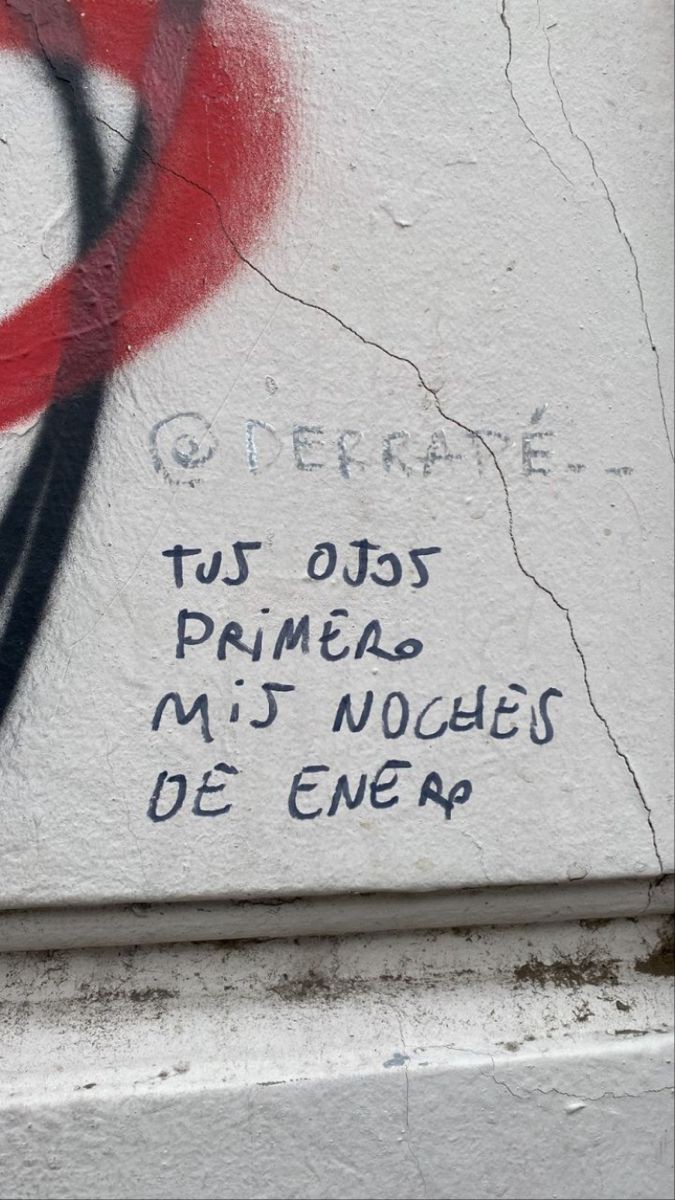 @DERRAPÉ__
TUS OJOS
PRIMERO
MIS NOCHES
DE ENERO